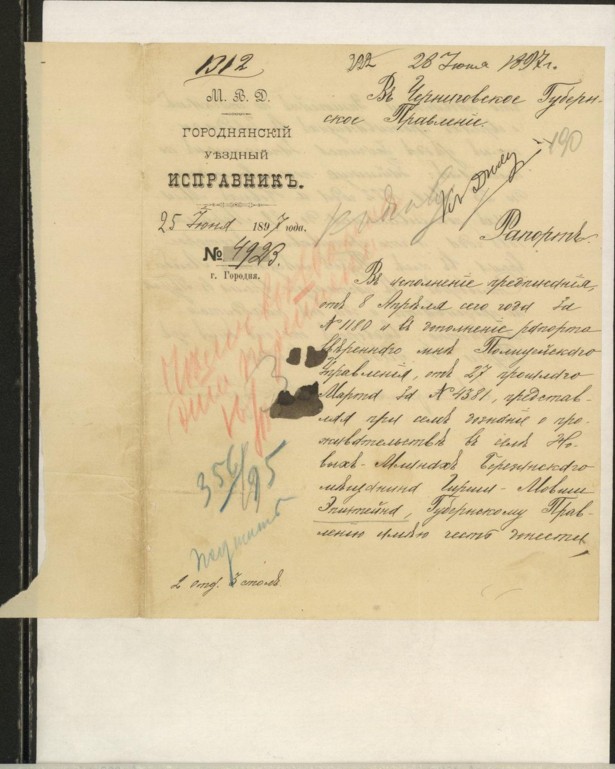 1312
26 Июня 1897 г.
М. В. Д.
ГОРОДНЯНСКІЙ
УѢЗДНЫЙ
ИСПРАВНИКЪ.
25 Июня 1897 года.
№ 4923.
г. Городня.
Въ Черниговское Губерн-
ское Правленіе.
190
Къ дѣлу
Рапортъ.
Въ исполненіе предписанія,
отъ 8 Апрѣля сего года за
№ 1180 и въ дополненіе рапорта
ввѣреннаго мнѣ Полицейскаго
Управленія, отъ 27 прошлаго
Марта за № 4381, представ-
ляя при семъ дознаніе о про-
живательствѣ въ селѣ Но-
выхъ-Млинахъ Березинскаго
мѣщанина Гирши-Мовши
Эпштейна, Губернскому Прав-
ленію имѣю честь донести,
356/95
2 отд. 5 столъ